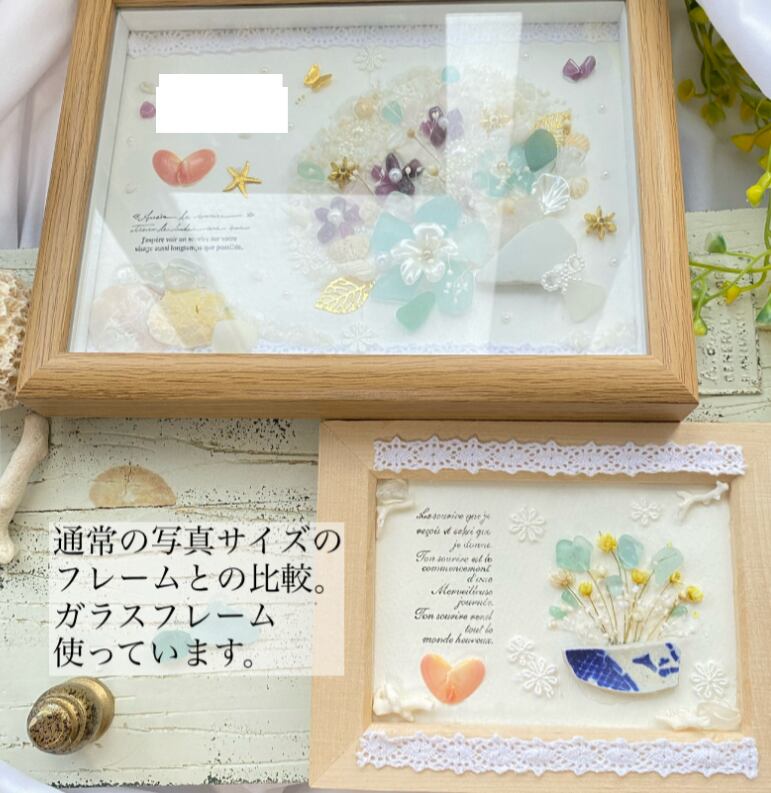 J'espère voir un sourire sur votre
visage aussi longtemps que possible.
Le sourire que je
reçois et celui que
je donne.
Ton sourire est le
commencement
d'une
Merveilleuse
journée.
Ton sourire rend
tout le
monde heureux.
通常の写真サイズの
フレームとの比較。
ガラスフレーム
使っています。